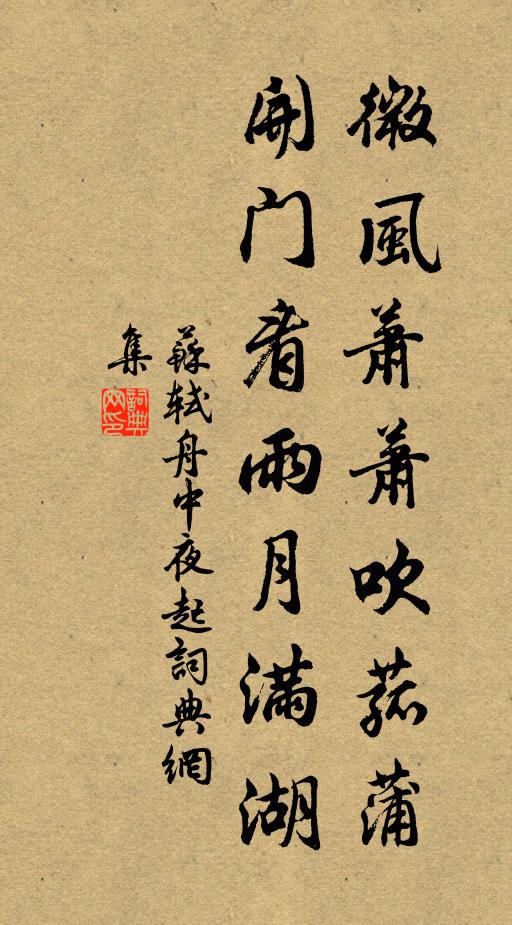 微風蕭蕭吹菰蒲
開门看雨月滿湖
蘇軾舟中夜起詞典網
集
詞典網印